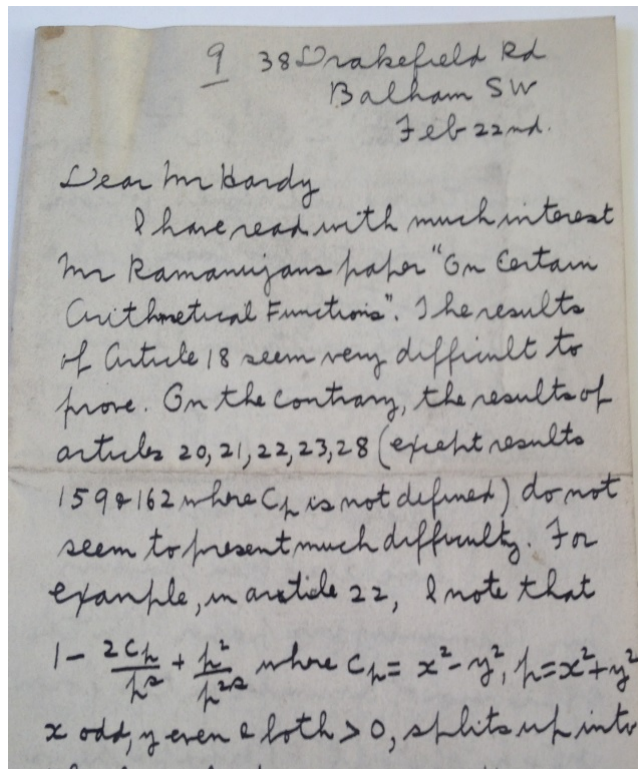 9 38 Drakefield Rd
Balham SW
Feb 22nd.
Dear Mr Hardy
I have read with much interest
Mr Ramanujans paper "On Certain
Arithmetical Functions". The results
of Article 18 seem very difficult to
prove. On the contrary, the results of
articles 20, 21, 22, 23, 28 (except results
159 & 162 where Cp is not defined) do not
seem to present much difficulty. For
example, in article 22, I note that
1 - 2Cp/p^s + p²/p^2s where Cp = x² - y², p = x² + y²
x odd, y even & both > 0, splits up into